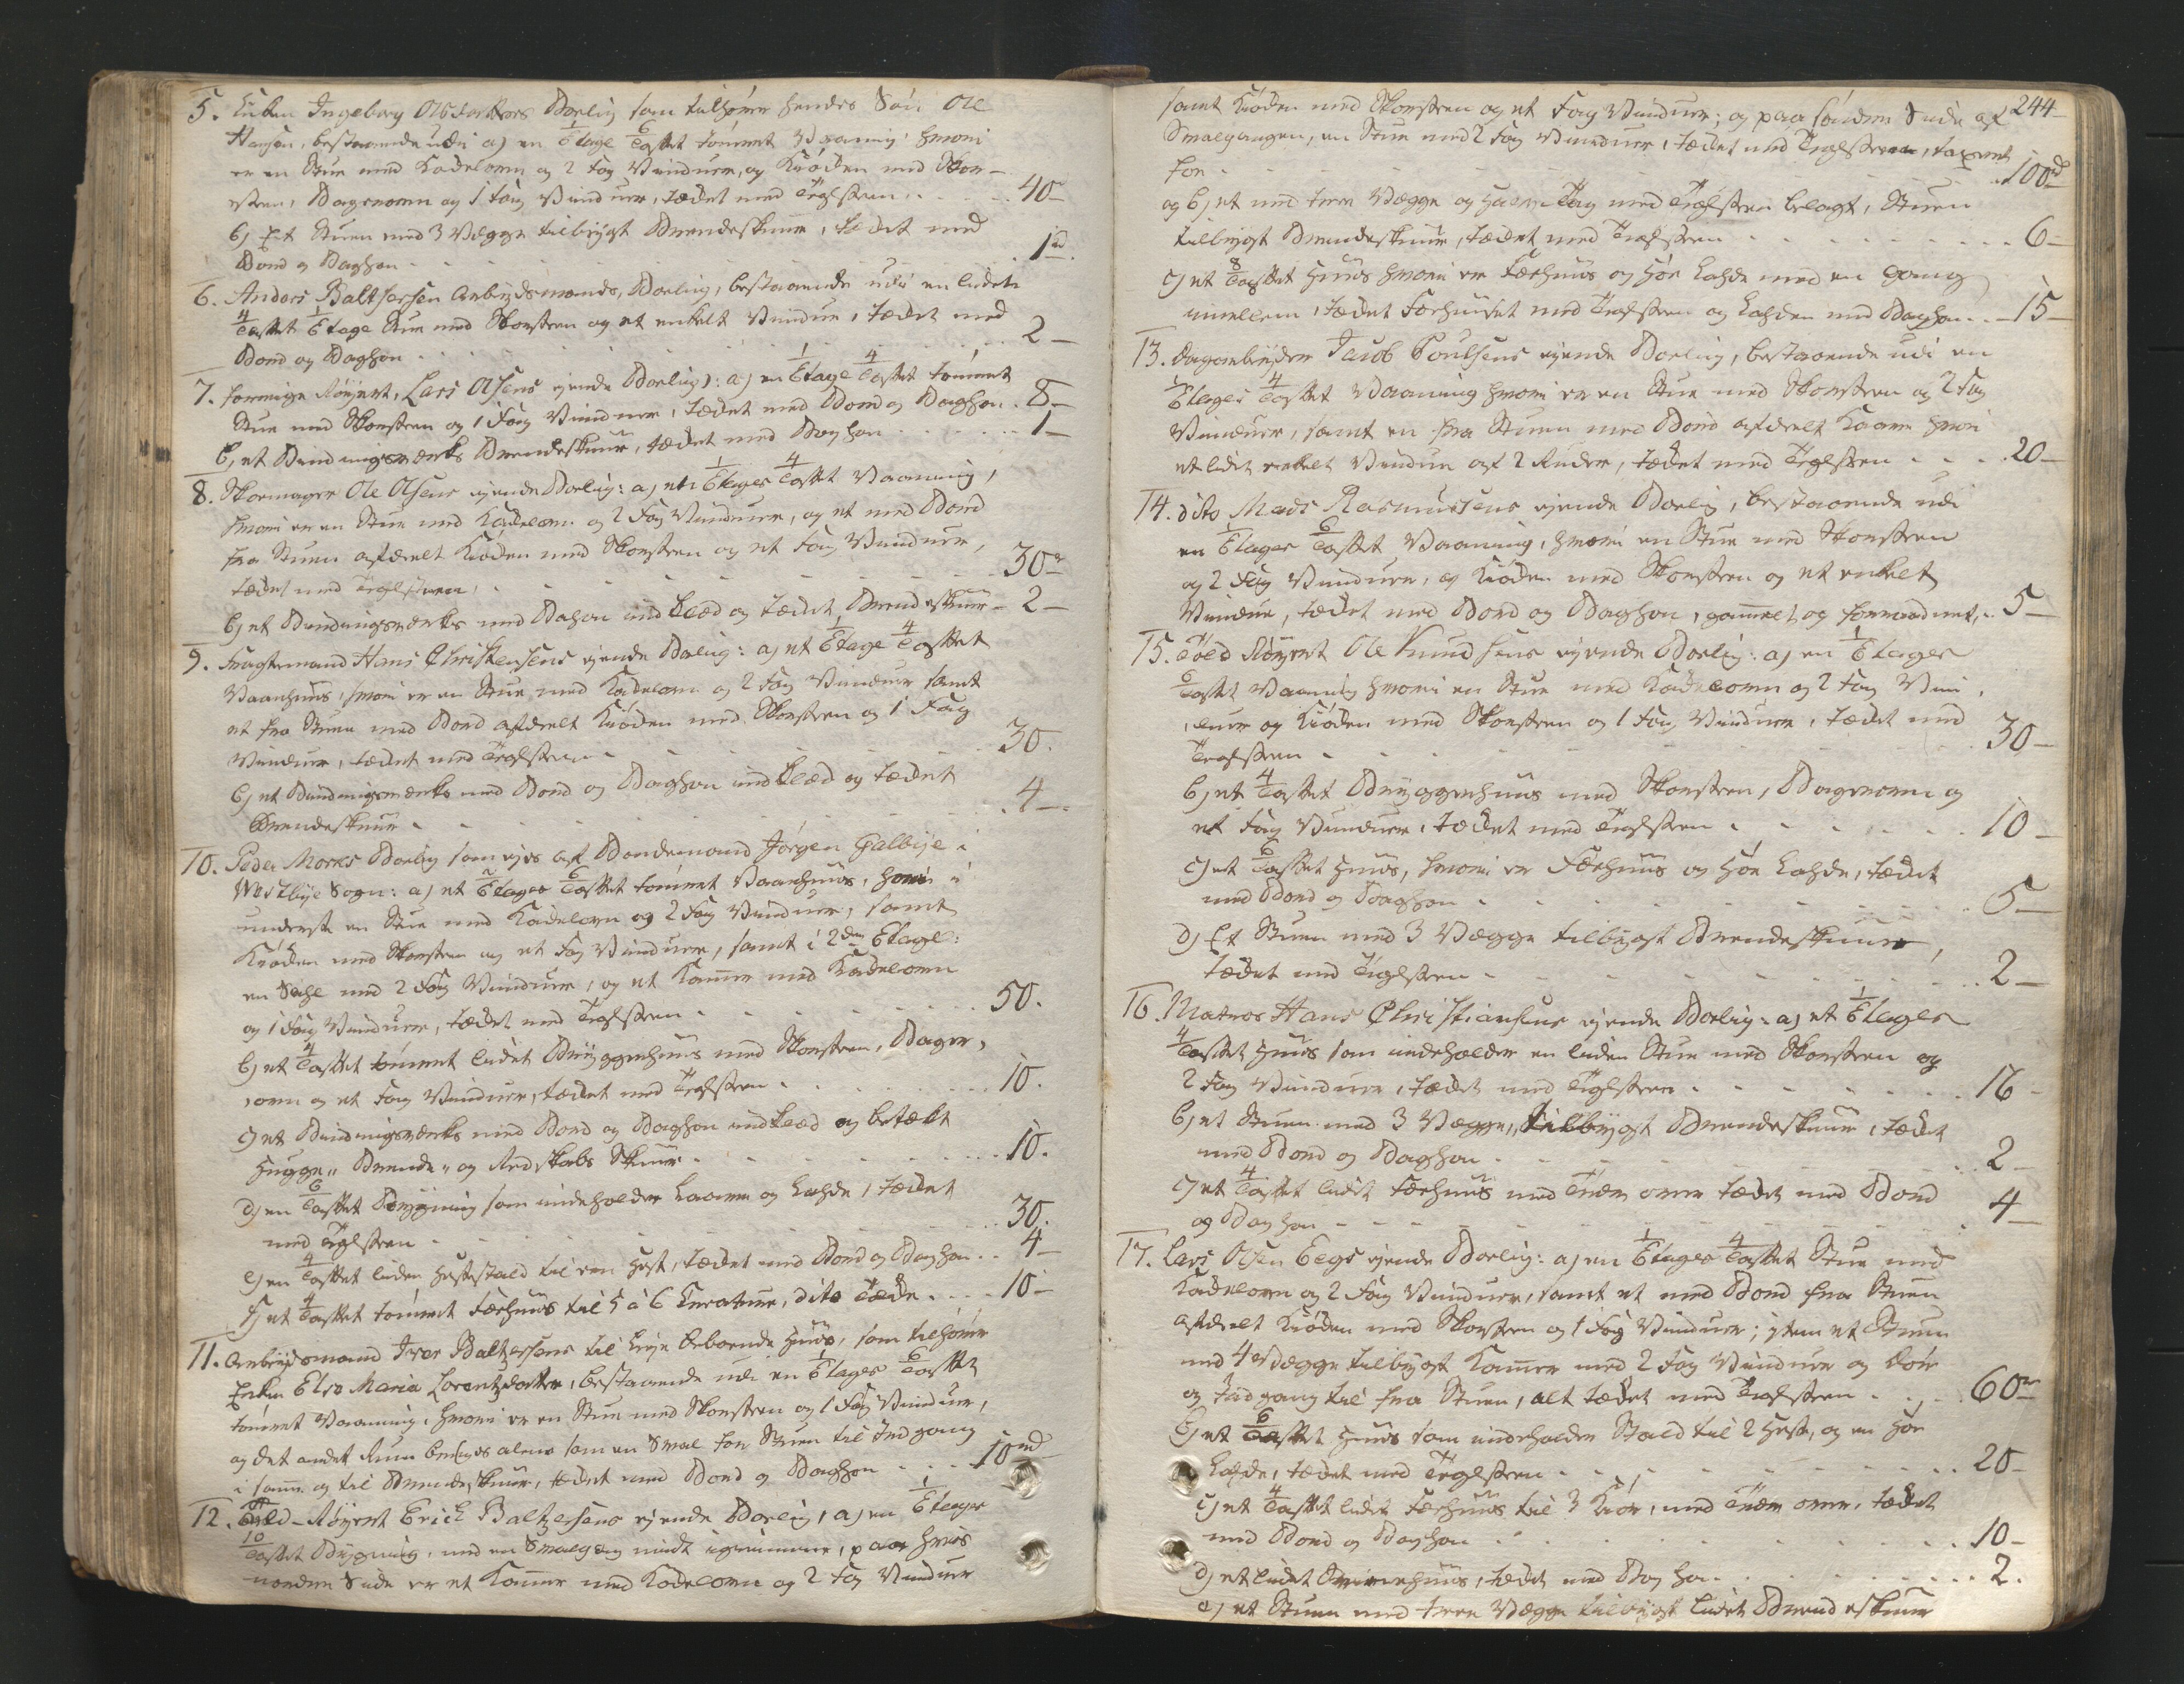 5. Enken Ingeborg Olsdatters Boelig som tilhører hendes Søn Ole
Hansen, bestaaende udi a) en 1 Etage 6 Laftet tømmret Vaaning hvori
er en Stue med Kakelovn og 2 Fag Vinduer, og Kiøken med Skor-
steen, Bagerovn og 1 Fag Vinduer, tækket med Teglsteen . . . 40 -
b) Et Stuen med 3 Vægge tilbygt Brendeskuur, tækket med
Bord og Baghon . . . 1 rd
6. Anders Baltsersen Arbeydsmands, Boelig, bestaaende udi en liden
4 Laftet 1 Etage Stue med Skorsteen og et enkelt Vindue, tækket med
Bord og Baghon . . . 2 -
7. forrige Røyert, Lars Olsens ejende Boelig: a) en 1 Etage 4 Laftet tømmret
Stue med Skorsteen og 1 Fag Vinduer, tækket med Bord og Baghon . 8 -
b, et Bindingsværks Brendeskuur, tækket med Baghon . . . 1 -
8. Skomager Ole Olsens ejende Boelig: a) et 1 Etages 4 Laftet Vaaning,
hvori er en Stue med Kakelovn og 2 Fag Vinduer, og et med Bord
fra Stuen afdeelt Kiøken med Skorsteen og et Fag Vinduer,
tækket med Teglsteen, . . . 30 r
b) et Bindingsværks med Bahon indklæd og tækket Brendeskuur - 2 -
9. Fragtemand Hans Christensens ejende Boelig: a) et 1 Etage 4 Laftet
Vaanhuus, hvori er en Stue med Kakelovn og 2 Fag Vinduer samt
et fra Stuen med Bord afdeelt Kiøken med Skorsteen og 1 Fag
Vinduer, tækket med Teglsteen . . . 30.
b) et Bindingsværks med Bord og Baghon indklæd og tækket
Brendeskuur . . . 4 -
10. Peder Morks Boelig som ejes af Bondemand Jørgen Galbye i
Westbye Sogn: a) et 2 Etages 6 Laftet tømmret Vaanhuus, hvori i
underste en Stue med Kakelovn og 2 Fag Vinduer, samt
Kiøken med Skorsteen og et Fag Vinduer, samt i 2den Etage:
en Sahl med 2 Fag Vinduer, og et Kamer med Kakelovn
og 1 Fag Vinduer, tækket med Teglsteen . . . 50.
b) et 4 Laftet tømmret lidet Bryggerhuus med Skorsteen, Bager,
,ovn og et Fag Vinduer, tækket med Teglsteen . . . 10.
c) et Bindingsværks med Bord og Baghon indklæd og betækt
Hugge,, Brende,, og Redskabs Skuur . . . 10.
d) en 6 Laftet Bygning som indeholder Laave og Lahde, tækket
med Teglsteen . . . 30.
e) en 4 Laftet liden Hestestald til een Hest, tækket med Bord og Baghon . . 4 -
f) et 4 Laftet tømmret Fæehuus til 5 à 6 Creature, dito Tække . . . 10 -
11. Arbeydsmand Iver Baltzersens til Leye beboende Huus, som tilhører
Enken Else Maria Lorentzdatter, bestaaende udi en 1 Etages 6 Laftet
tømret Vaaning, hvori er en Stue med Skorsteen og 1 Fag Vinduer,
og det andet Rum bruges alene som en Sval for Stuen til Indgang
i samme og til Brendeskuur, tækket med Bord og Baghon . . . 10 rd
12. Told-Røyert Erich Baltzersens ejende Boelig, a) en 1 Etages
10 Laftet Bygning, med en Smalgang midt igiennem, paa hvis
nordere Side er et Kamer med Kakelovn og 2 Fag Vinduer
244
samt Kiøken med Skorsteen og et Fag Vinduer; og paa søndere Side af
Smalgangen, en Stue med 2 Fag Vinduer, tækket med Teglsteen, taxeret
for . . . 100 rd
og b) et med trende Vægge og Halm Tag med Teglsteen belagt, Stuen
tilbygt Brendeskuur, tækket med Teglsteen . . . 6 -
c) et 8 Laftet Huus hvori er Fæehuus og Høe Lahde med en Gang
imellem, tækket Foehuuset med Teglsteen og Lahden med Baghon . . 15 -
13. Dagarbeyder Jacob Poulsens ejende Boelig, bestaaende udi en
1 Etages 4 Laftet Vaaning hvori er en Stue med Skorsteen og 2 Fag
Vinduer, samt en fra Stuen med Bord afdeelt Kaave hvori
et lidet enkelt Vindue af 2 Ruder, tækket med Teglsteen . . . 20 -
14. dito Mads Rasmussens ejende Boelig, bestaaende udi
en 1 Etages 6 Laftet Vaaning, hvori en Stue med Skorsteen
og 2 Fag Vinduer, og Kiøken med Skorsteen og et enkelt
Vindue, tækket med Bord og Baghon, gammelt og forraadnet, . 5 -
15. Told Røyert Ole Knudsens ejende Boelig: a) en 1 Etages
6 Laftet Vaaning hvori en Stue med Kakelovn og 2 Fag Vin,
,duer og Kiøken med Skorsteen og 1 Fag Vinduer, tækket med
Teglsteen . . . 30 -
b) et 4 Laftet Bryggerhuus med Skorsteen, Bagerovn og
et Fag Vinduer, tækket med Teglsteen . . . 10 -
c) et 6 Laftet Huus, hvori er Fæehuus og Høe Lahde, tækket
med Bord og Baghon . . . 5 -
d) Et Stuen med 3 Vægge tilbygt Brendeskuur,
tækket med Teglsteen . . . 2 -
16. Matros Hans Christiansens ejende Boelig: a) et 1 Etages
4 Laftet Huus som indeholder en liden Stue med Skorsteen og
2 Fag Vinduer, tækket med Teglsteen . . . 16 -
b) et Stuen med 3 Vægge,, tilbygt Brendeskuur, tækket
med Bord og Baghon . . . 2 -
c) et 4 Laftet lidet Fæehuus med Trev over tækket med Bord
og Baghon . . . 4 -
17. Lars Olsen Eegs ejende Boelig: a) en 1 Etages 4 Laftet Stue med
Kakelovn og 2 Fag Vinduer, samt et med Bord fra Stuen
afdeelt Kiøken med Skorsteen og 1 Fag Vinduer; item et Stuen
med 4 Vægge tilbygt Kamer med 2 Fag Vinduer og Dør
og Indgang til fra Stuen, alt tækket med Teglsteen . . . 60 r
b) et 6 Laftet Huus som indeholder Stald til 2 Heste, og en Høe
Lahde, tækket med Teglsteen . . . 20 -
c) et 4 Laftet lidet Fæehuus til 3 Kiør, med Trev over, tækket
med Bord og Baghon . . . 10 -
d) et lidet Sviinehuus, tækket med Baghon . . . 2.
e) et Stuen med trende Vægge tilbygt lidet Brendeskuur